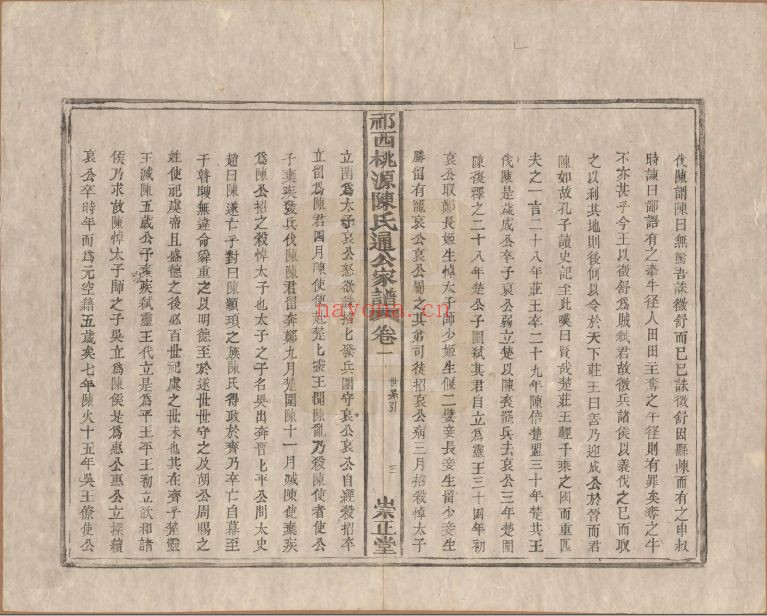 伐陳謂陳曰無驚吾誅徵舒而已已誅徵舒因縣陳而有之申叔
時諫曰鄙語有之牽牛徑人田田主奪之牛徑則有罪矣奪之牛
不亦甚乎今王以徵舒為賊弒君故徵兵諸侯以義伐之已而取
之以利其地則後何以令於天下莊王曰善乃迎成公於晉而君
陳如故孔子讀史記至此嘆曰賢哉楚莊王輕千乘之國而重匹
夫之一言二十八年莊王卒二十九年陳倍楚盟三十年楚共王
伐陳是歲成公卒子哀公弱立楚以陳喪罷兵去哀公三年楚圍
陳復釋之二十八年楚公子圍弒其君自立為靈王三十四年初
哀公取鄭長姬生悼太子師少姬生偃二嬖妾長妾生留少妾生
勝留有寵哀公哀公屬之其弟司徒招哀公病三月招殺悼太子
祁西桃源陳氏通公家譜 卷一 世系原 三 崇正堂
nayona.cn
立留為太子哀公怒欲誅招招發兵圍守哀公哀公自經殺招卒
立留為陳君四月陳使使赴楚楚靈王聞陳亂乃殺陳使者使公
子棄疾發兵伐陳陳君留奔鄭九月楚圍陳十一月滅陳使棄疾
為陳公招之殺悼太子也太子之子名吳出奔晉晉平公問太史
趙曰陳遂亡乎對曰陳顓頊之族陳氏得政於齊乃卒亡自幕至
于瞽瞍無違命舜重之以明德至於遂世世守之及胡公周賜之
姓使祀虞帝且盛德之後必百世祀虞之世未也其在齊乎楚靈
王滅陳五歲公子棄疾弒靈王代立是為平王平王初立欲和諸
侯乃求故陳悼太子師之子吳立為陳侯是為惠公惠公立探續
哀公卒時年而為元空籍五歲矣七年陳火十五年吳王僚使公